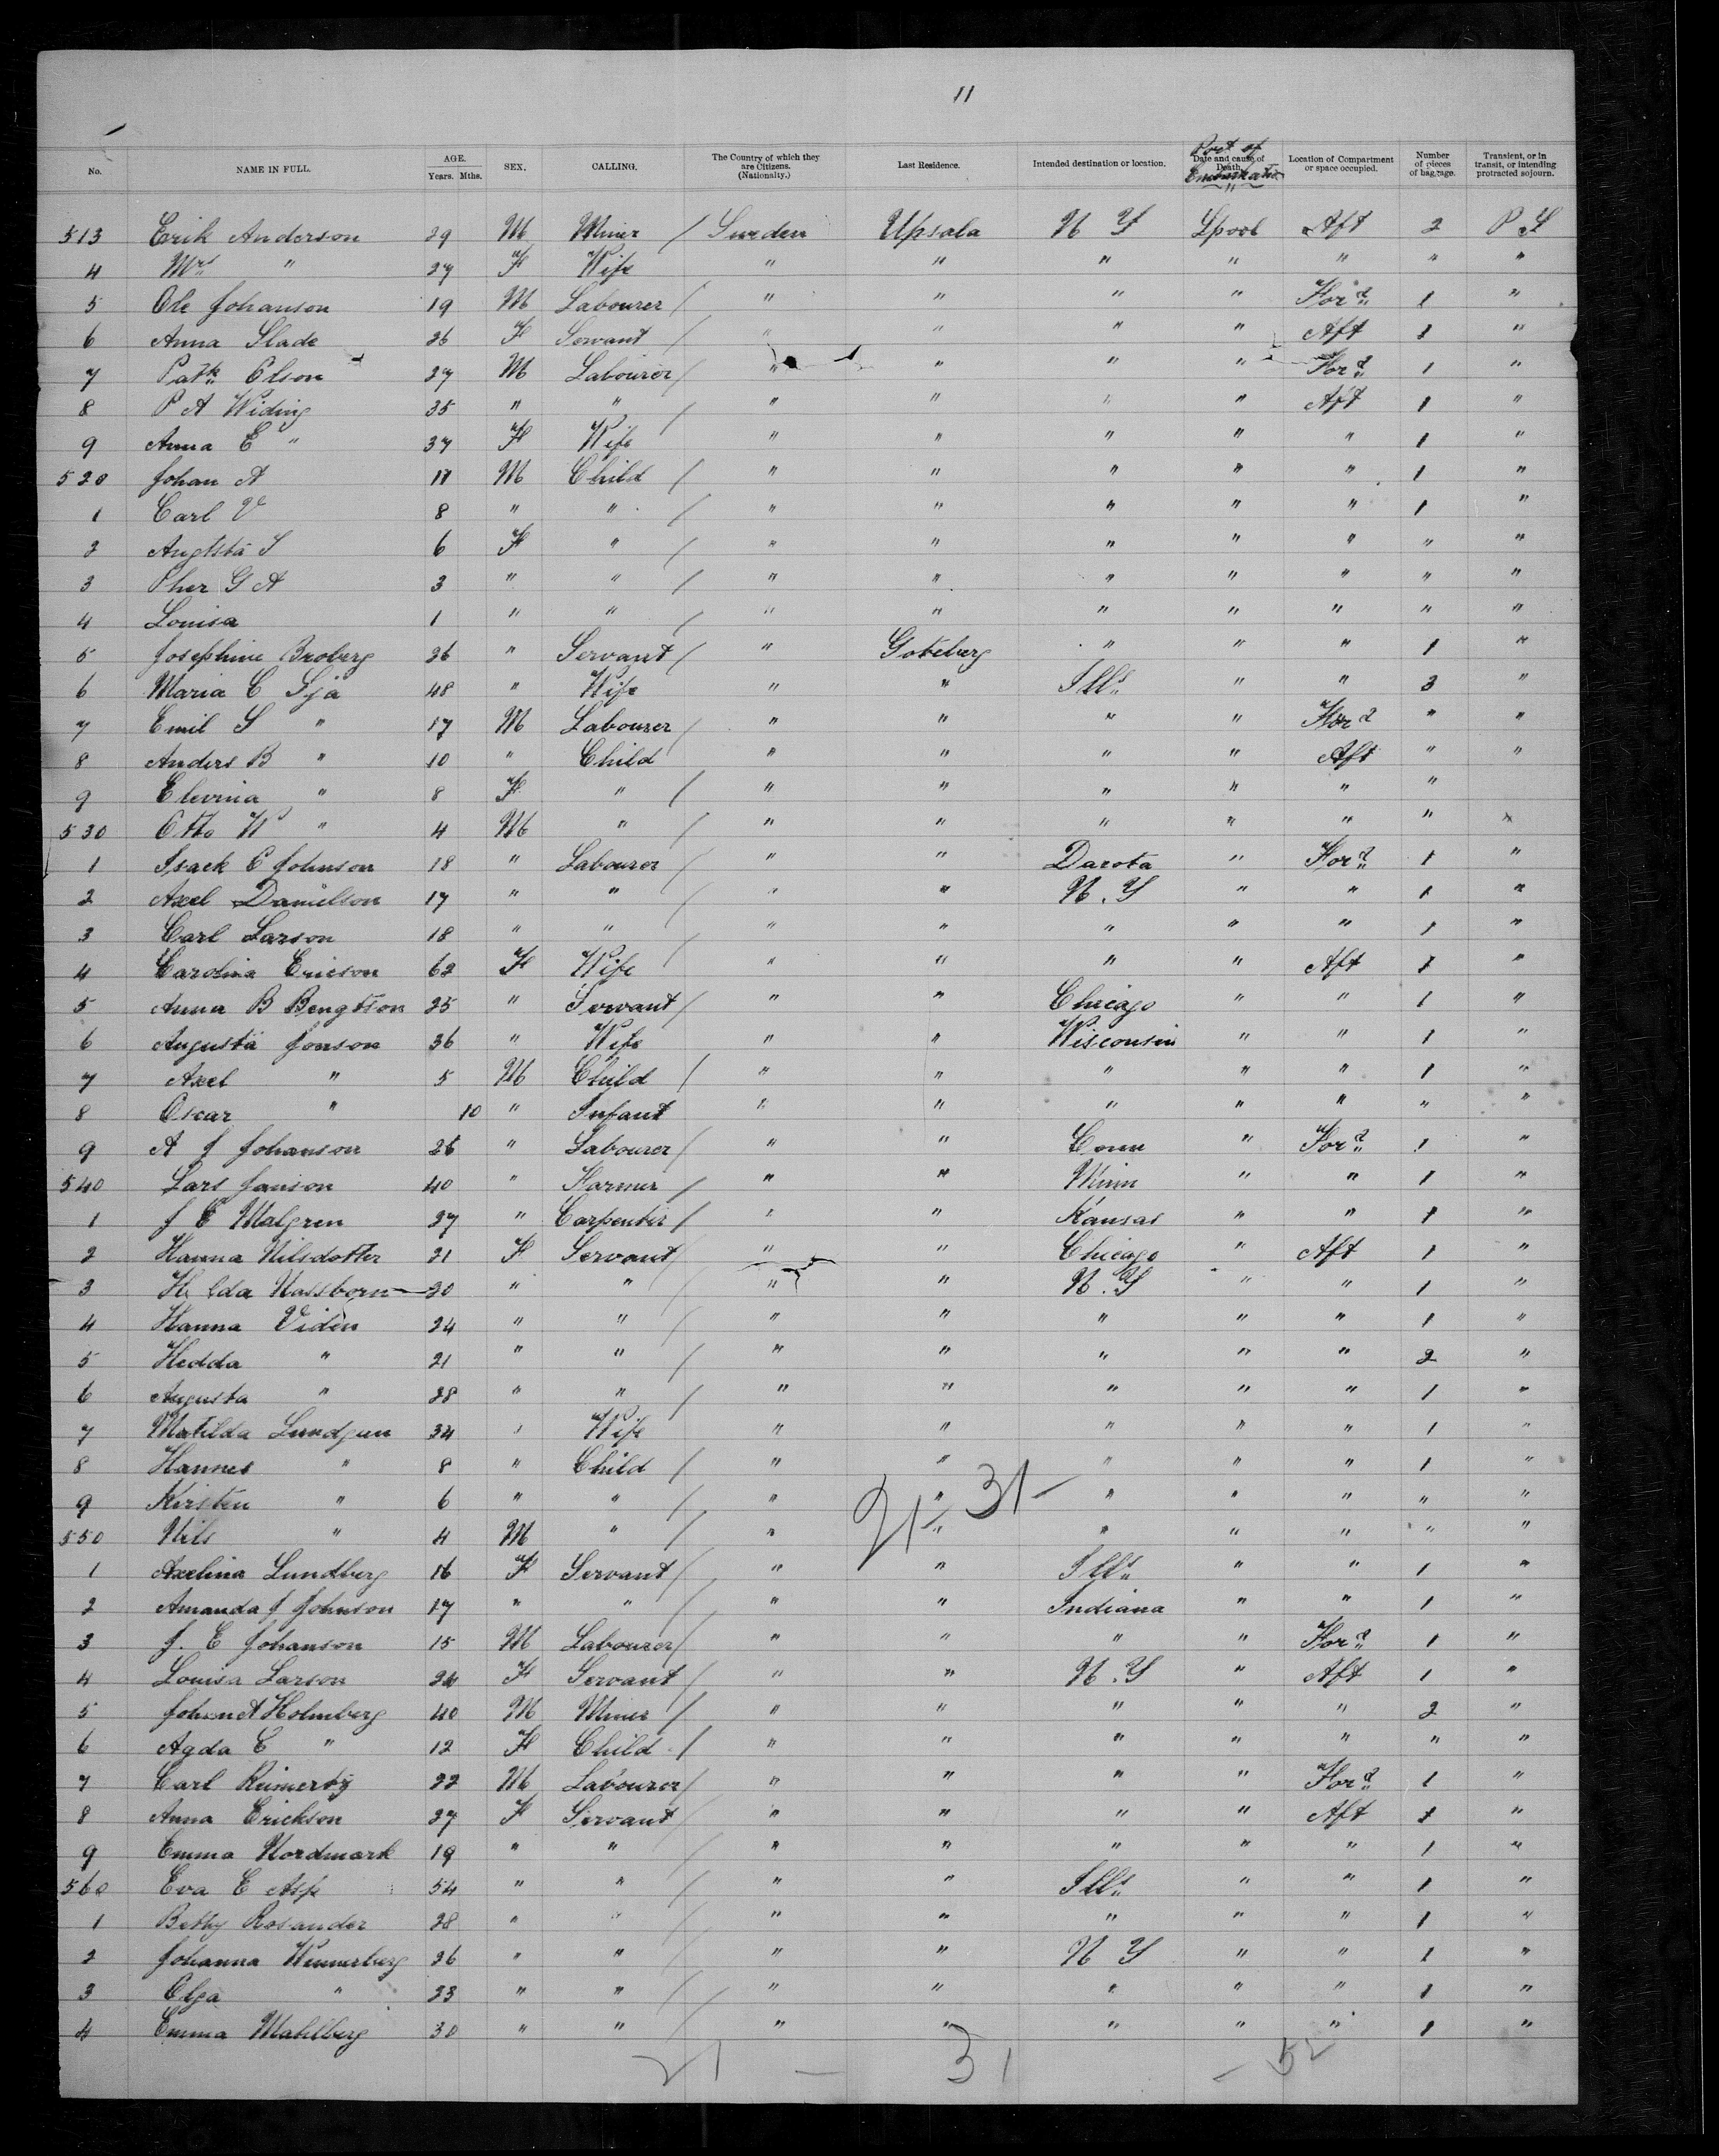 11
No. NAME IN FULL. AGE. Years. Mths. SEX. CALLING. The Country of which they are Citizens. (Nationality.) Last Residence. Intended destination or location. Date and cause of Death. Port of Embarkation Location of Compartment or space occupied. Number of pieces of baggage. Transient, or in transit, or intending protracted sojourn.
513 Erik Anderson 29 M Miner / Sweden Upsala N Y Lpool Aft 2 P S
4 Mrs " 27 F Wife " " " " " " "
5 Ole Johanson 19 M Labourer / " " " " For'd 1 "
6 Anna Slade 26 F Servant / " " " " Aft 1 "
7 Patk Olson 27 M Labourer / " " " " For'd 1 "
8 P A Widing 35 " " / " " " " Aft 1 "
9 Anna E " 37 F Wife " " " " " 1 "
520 Johan A 11 M Child / " " " " " 1 "
1 Carl V 8 " " / " " " " " 1 "
2 Augtsta S 6 F " / " " " " " " "
3 Pher G A 3 " " / " " " " " " "
4 Louisa 1 " " / " " " " " " "
5 Josephine Broberg 26 " Servant / " Goteberg " " " 1 "
6 Maria C Sja 48 " Wife " " Ills " " 3 "
7 Emil S " 17 M Labourer / " " " " For'd " "
8 Anders B " 10 " Child / " " " " Aft " "
9 Elevina " 8 F " / " " " " " "
530 Otto W " 4 M " / " " " " " " "
1 Isack E Johnson 18 " Labourer / " " Darota " For'd 1 "
2 Axel Danielson 17 " " / " " N.Y " " 1 "
3 Carl Larson 18 " " / " " " " " 1 "
4 Carolina Ericson 62 F Wife / " " " " Aft 1 "
5 Anna B Bengtson 25 " Servant / " " Chicago " " 1 "
6 Augusta Jonson 36 " Wife " " Wisconsin " " 1 "
7 Axel " 5 M Child / " " " " " 1 "
8 Oscar " 10 " Infant " " " " " " "
9 A J Johanson 26 " Labourer / " " Conn " For'd 1 "
540 Lars Janson 40 " Farmer / " " Minn " " 1 "
1 J E Malgren 27 " Carpenter / " " Kansas " " 1 "
2 Hanna Nilsdotter 21 F Servant / " " Chicago " Aft 1 "
3 Hilda Nassborn 20 " " / " " N.Y " " 1 "
4 Hanna Viden 24 " " / " " " " " 1 "
5 Hedda " 21 " " / " " " " " 2 "
6 Augusta " 28 " " / " " " " " 1 "
7 Matilda Lundgun 34 " Wife " " " " " 1 "
8 Hannes " 8 " Child / " " " " " 1 "
9 Kirsten " 6 " " / " " " " " " "
21 - 31 -
550 Nils " 4 M " / " " " " " " "
1 Axelina Lundberg 16 F Servant / " " Ills " " 1 "
2 Amanda J Johnson 17 " " / " " Indiana " " 1 "
3 J. E Johanson 15 M Labourer / " " " " For'd 1 "
4 Louisa Larson 24 F Servant / " " N.Y " Aft 1 "
5 Johan A Holmberg 40 M Miner / " " " " " 2 "
6 Agda E " 12 F Child / " " " " " " "
7 Carl 22 M Labourer / " " " " For'd 1 "
8 Anna Erickson 27 F Servant / " " " " Aft 1 "
9 Emma Nordmark 19 " " / " " " " " 1 "
560 Eva E Asp 54 " " / " " Ills " " 1 "
1 Betty Rosander 28 " " / " " " " " 1 "
2 Johanna Wennerberg 26 " " / " " N Y " " 1 "
3 Olga " 23 " " / " " " " " 1 "
4 Emma Mahlberg 30 " " / " " " " " 1 "
21 - 31 - 52